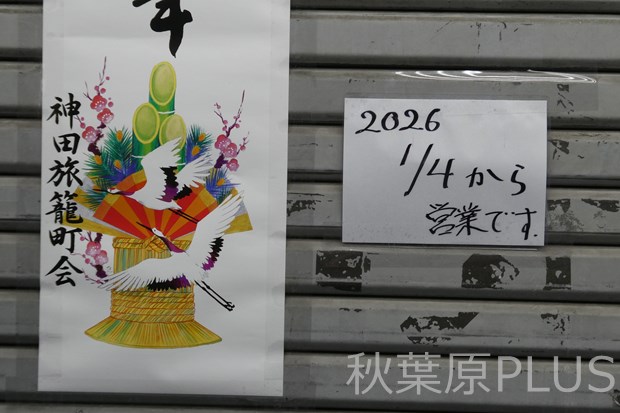 年
神田旅籠町会
2026
1/4から
営業です.
秋葉原PLUS